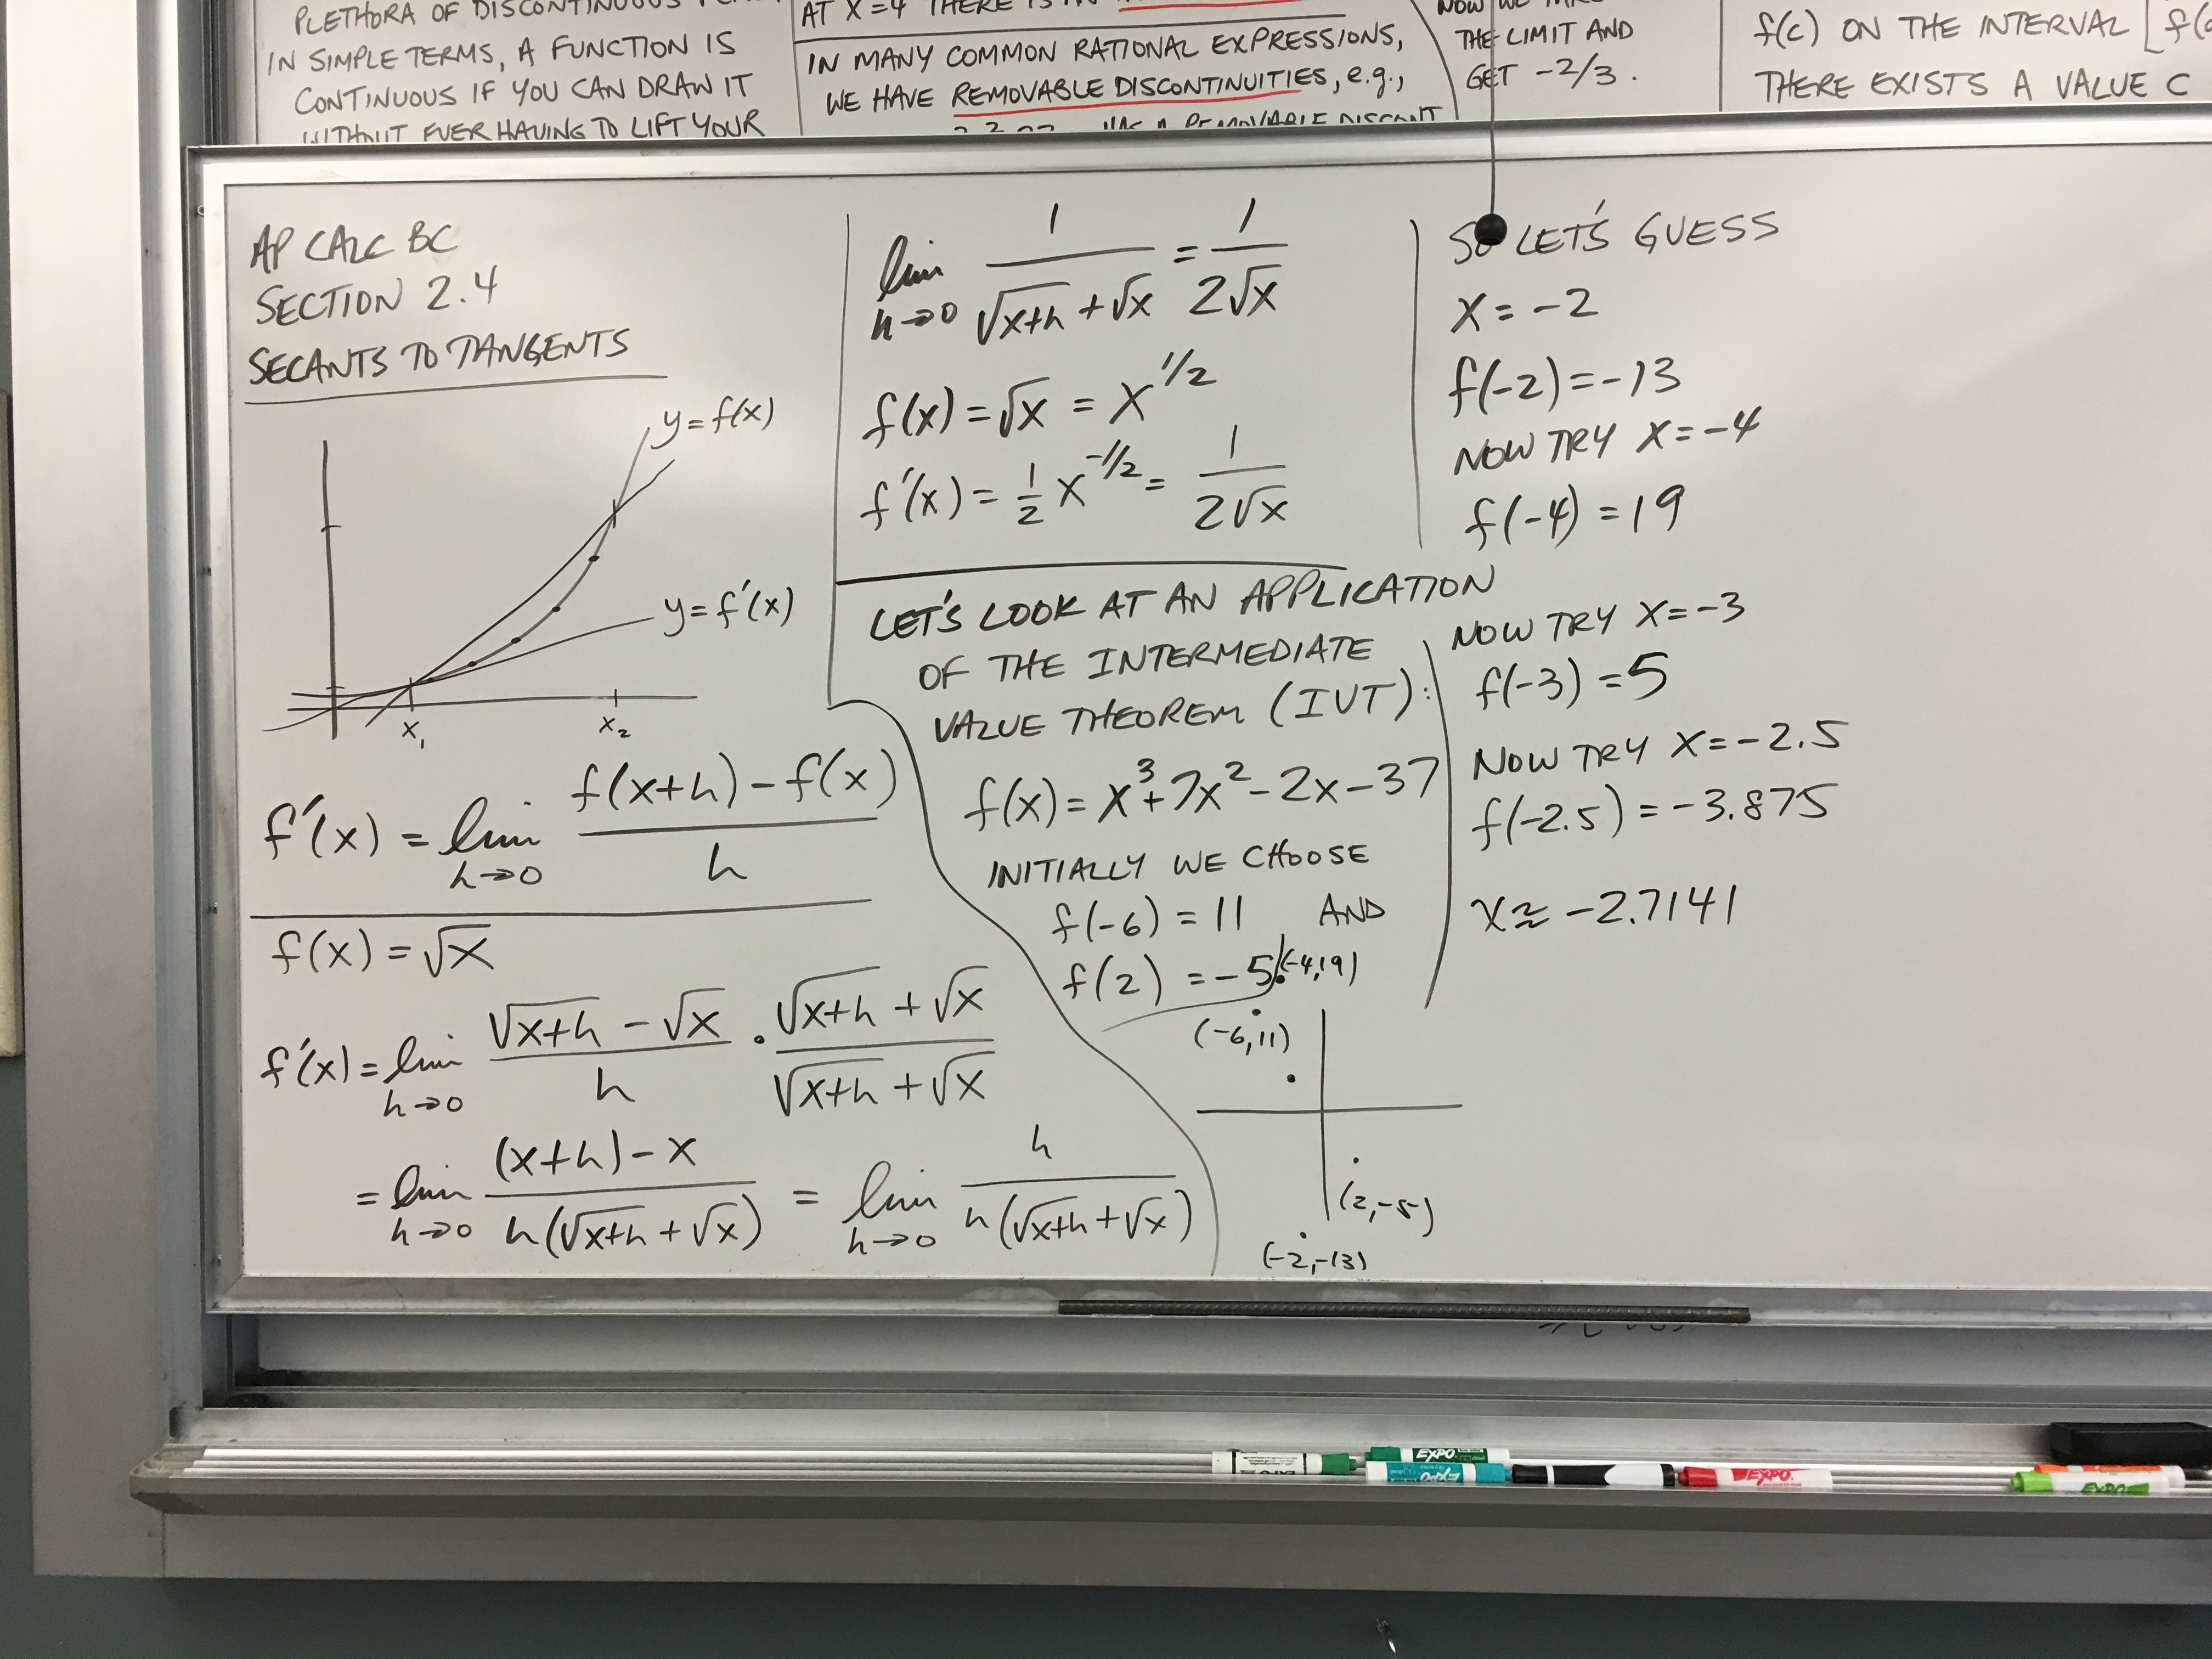 PLETHORA OF DISCONTINUOUS
IN SIMPLE TERMS, A FUNCTION IS
CONTINUOUS IF YOU CAN DRAW IT
WITHOUT EVER HAVING TO LIFT YOUR
AT X=4 THERE IS
IN MANY COMMON RATIONAL EXPRESSIONS,
WE HAVE REMOVABLE DISCONTINUITIES, e.g.,
HAS A REMOVABLE DISCONT
NOW WE TAKE
THE LIMIT AND
GET -2/3.
f(c) ON THE INTERVAL [f(
THERE EXISTS A VALUE C
AP CALC BC
SECTION 2.4
SECANTS TO TANGENTS
y=f(x)
y=f'(x)
x₁ x₂
f'(x) = lim h→0 (f(x+h)-f(x))/h
f(x) = √x
f'(x) = lim h→0 (√(x+h) - √x)/h · (√(x+h) + √x)/(√(x+h) + √x)
= lim h→0 ((x+h)-x)/(h(√(x+h) + √x)) = lim h→0 h/(h(√(x+h) + √x))
lim h→0 1/(√(x+h) + √x) = 1/(2√x)
f(x) = √x = x^(1/2)
f'(x) = 1/2 x^(-1/2) = 1/(2√x)
LET'S LOOK AT AN APPLICATION
OF THE INTERMEDIATE
VALUE THEOREM (IVT):
f(x) = x³+7x²-2x-37
INITIALLY WE CHOOSE
f(-6) = 11 AND
f(2) = -5
(-4,19)
(-6,11)
(2,-5)
(-2,-13)
SO LET'S GUESS
x = -2
f(-2) = -13
NOW TRY x=-4
f(-4) = 19
NOW TRY x=-3
f(-3) = 5
NOW TRY x=-2.5
f(-2.5) = -3.875
x≈ -2.7141
EXPO
EXPO
EXPO
EXPO
EXPO